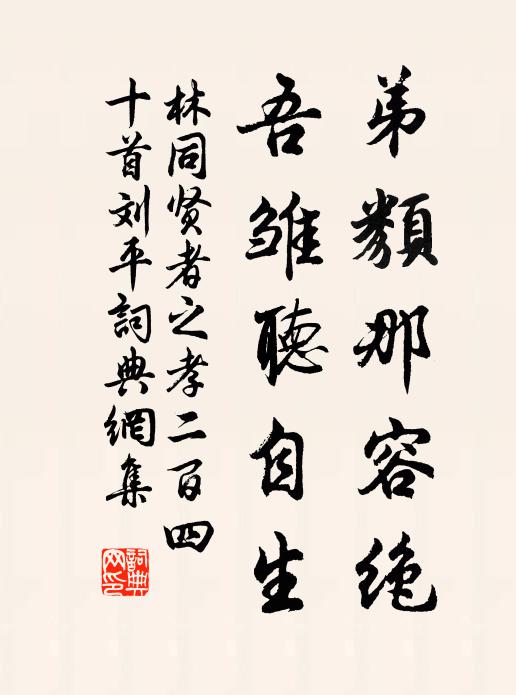 弟類那容絶
吾雏聽自生
林同贤者之孝二百四
十首刘平詞典網集
詞典
网印